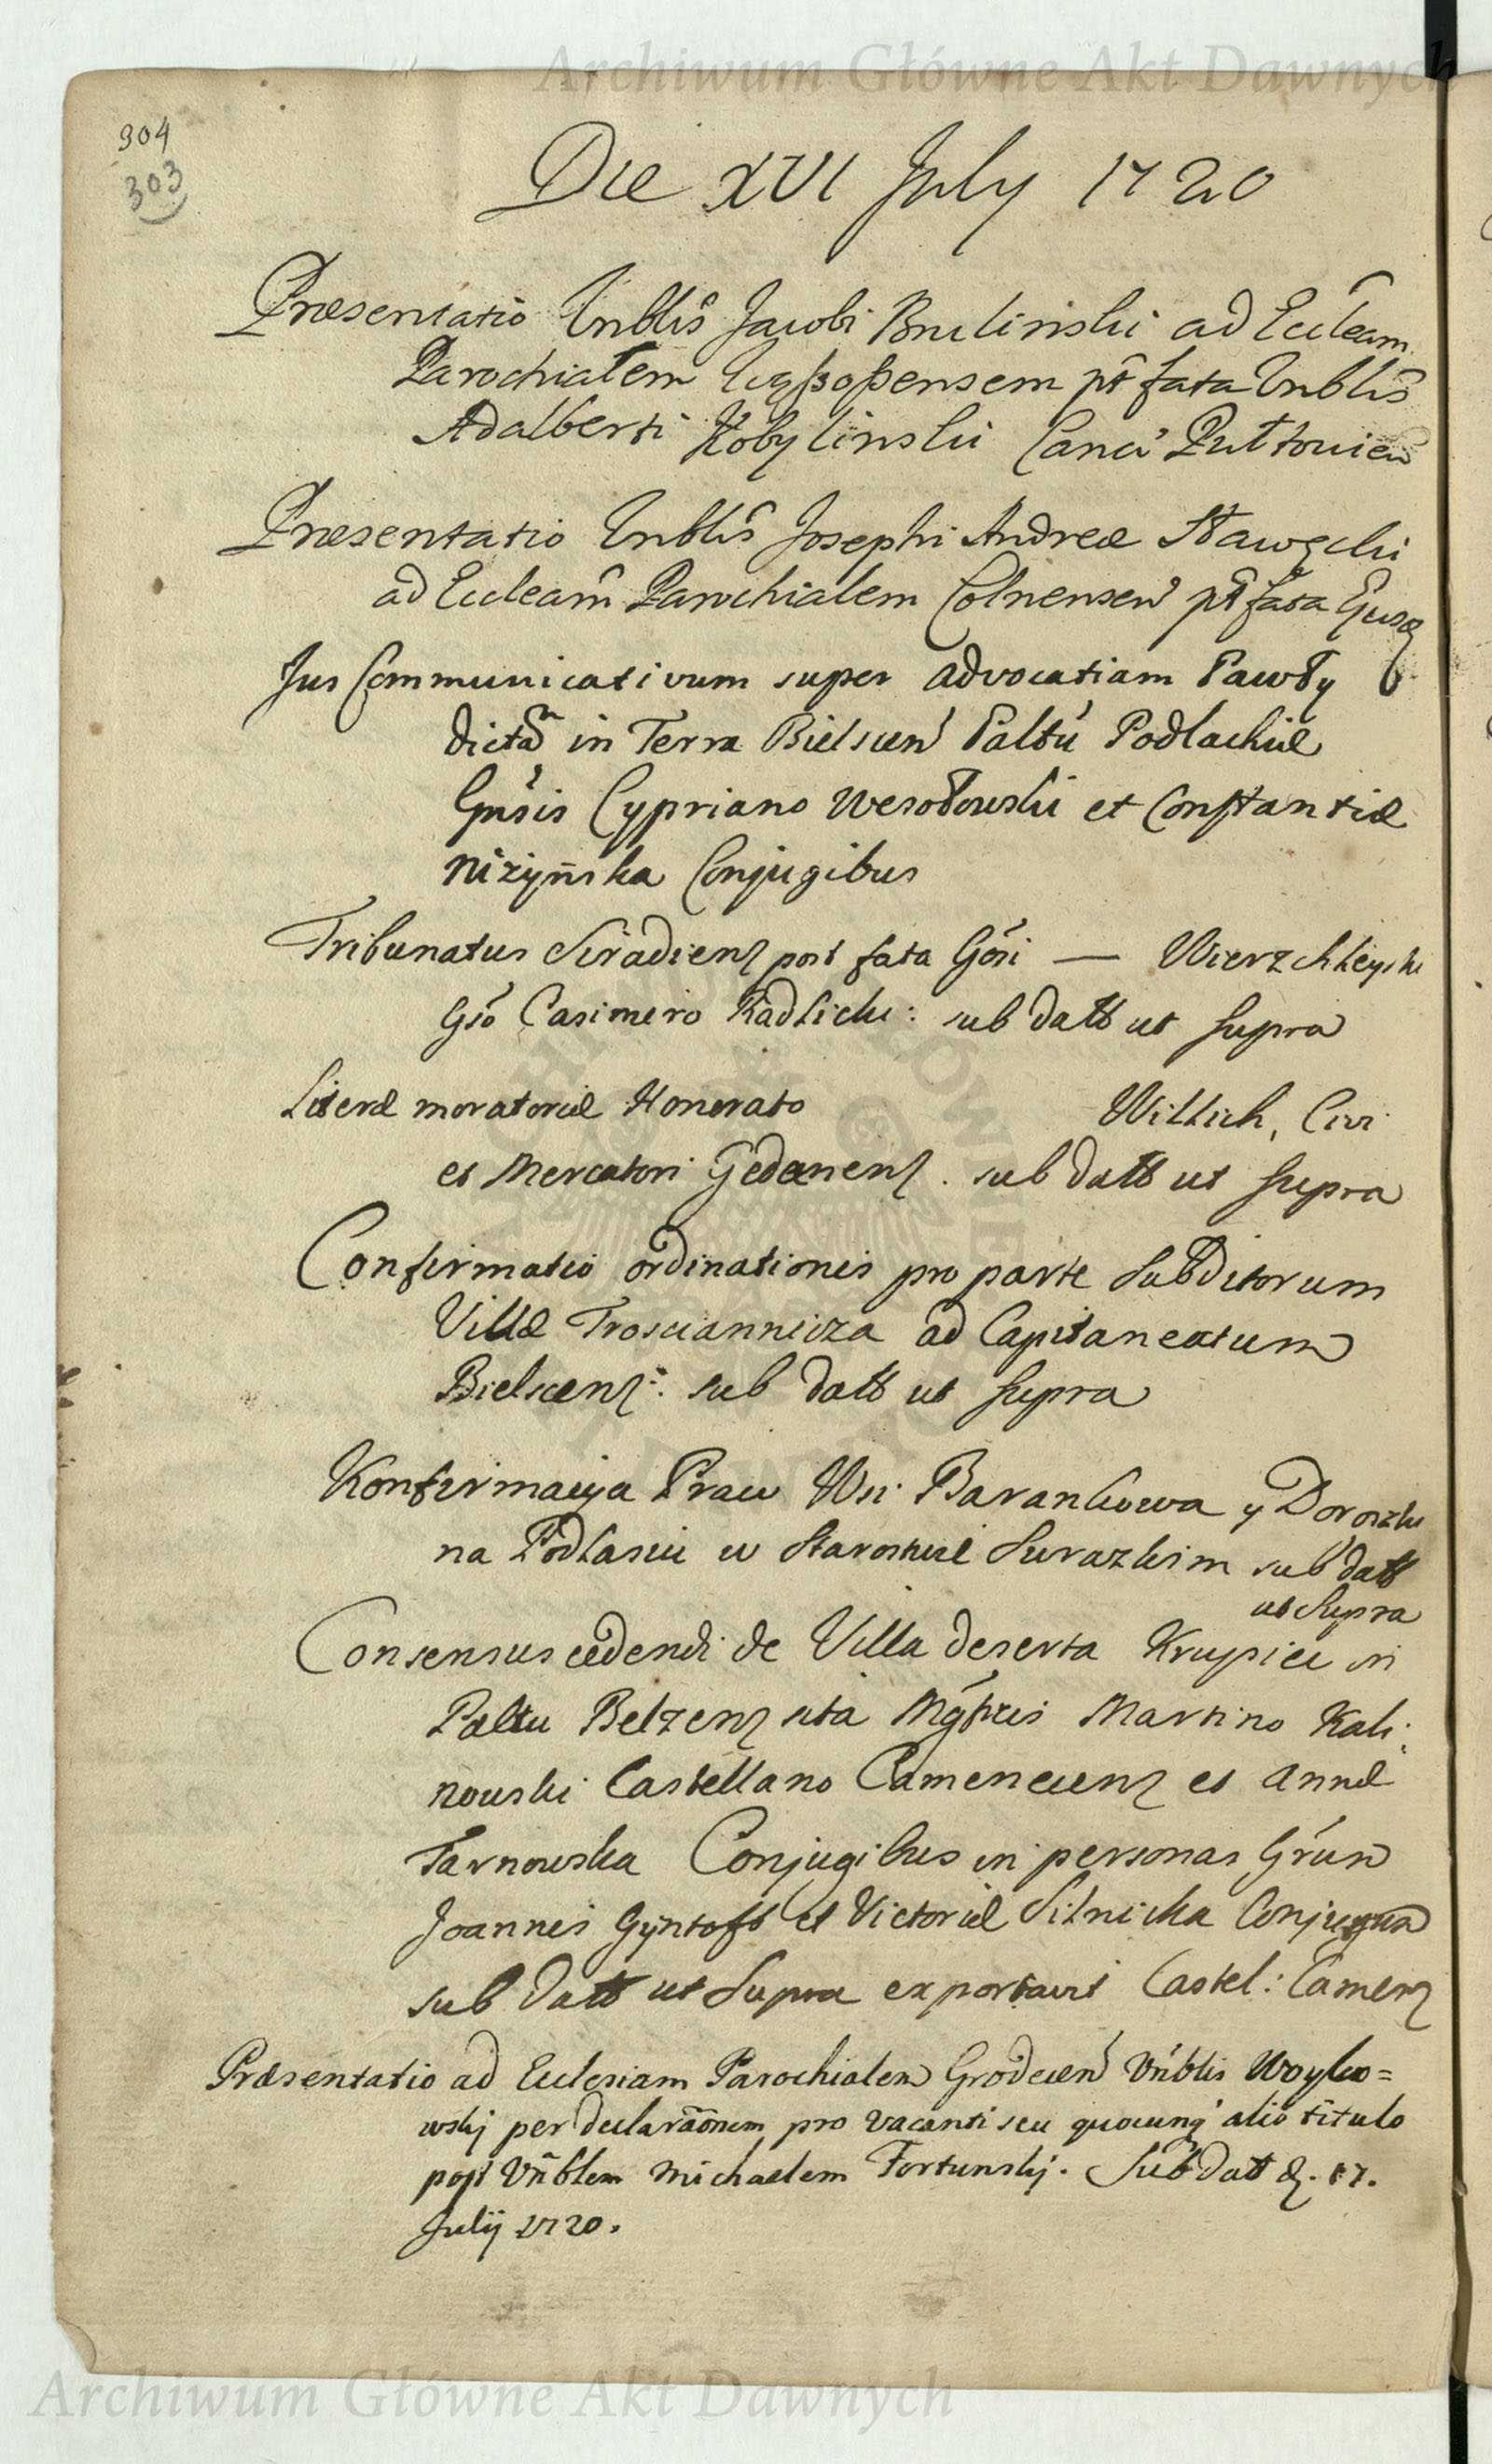 Archiwum Główne Akt Dawnych
304
303
Die XVI July 1720
Præsentatio Vnblis Jacobi Brulinski ad Eccleam
Parochialem pt fata Vnblis
Adalberti Kobylinski Canci Pułtovien
Præsentatio Vnblis Josephi Andreæ Stawecki
ad Eccleam Parochialem Colnensem pt fata Ejusd
Jus Communicativum super advocatiam Pawły
dictam in Terra Bielscen Paltu Podlachiæ
Gnsis Cypriano Wesołowski et Constantiæ
Niżyńska Conjugibus
Tribunatus Siradien post fata Gosi — Wierzchleyski
Gso Casimiro Kadlicki: sub datt ut supra
Literæ moratoriæ Honorato Willich, Civi
et Mercatori Gedanen. sub datt ut supra
Confirmatio ordinationis pro parte Subditorum
Villæ Troscianniczа ad Capitaneatum
Bielscen: sub datt ut supra
Konfirmacya Praw Wsi Barankowa y Doroszki
na Podlasiu w Starostwie Surazkim sub datt
ut Supra
Consensus cedendi de Villa deserta Krupice in
Paltu Belzen sita Mgfcis Martino Kali:
nouski Castellano Camenecen et Annæ
Tarnowska Conjugibus in personas Grum
Joannis Gyntoft et Victoriæ Silnicka Conjugum
sub datt ut Supra exportavit Castel: Camen
Præsentatio ad Ecclesiam Parochialem Grodecen Vnblis Woyko=
wskj per declarãonem pro vacanti seu quocunq alio titulo
post Vnblem Michaelem Fortunskj. Sub datt d. 17.
Julij 1720.
Archiwum Główne Akt Dawnych